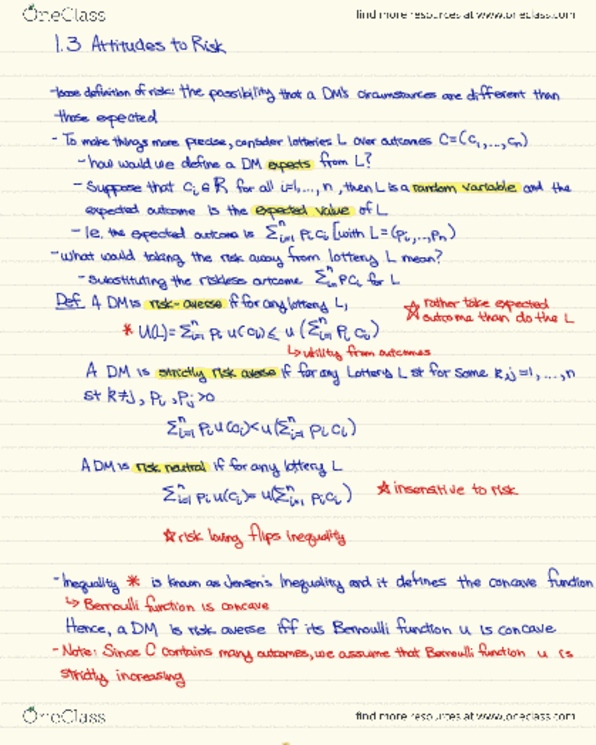 OneClass
find more resources at www.oneclass.com
1.3 Attitudes to Risk
-loose definition of risk: the possibility that a DM's circumstances are different than
those expected
- To make things more precise, consider lotteries L over outcomes C=(c₁,...,cₙ)
- how would we define a DM expects from L?
- Suppose that cᵢ∈ℝ for all i=1,...,n, then L is a random variable and the
expected outcome is the expected value of L
- Ie. the expected outcome is Σⁿᵢ₌₁ pᵢcᵢ [with L=(p₁,...,pₙ)
-what would taking the risk away from lottery L mean?
- substituting the riskless outcome Σⁿᵢ₌₁ pcᵢ for L
Def: A DM is risk-averse if for any lottery L,
☆ rather take expected
outcome than do the L
* U(L)=Σⁿᵢ₌₁ pᵢ u(cᵢ) ≤ u(Σⁿᵢ₌₁ pᵢcᵢ)
↳utility from outcomes
A DM is strictly risk averse if for any Lottery L st for some k,j=1,...,n
st k≠j, pᵢ, pⱼ>0
Σⁿᵢ₌₁ pᵢu(cᵢ)<u(Σⁿᵢ₌₁ pᵢcᵢ)
A DM is risk neutral if for any lottery L
Σⁿᵢ₌₁ pᵢu(cᵢ)=u(Σⁿᵢ₌₁ pᵢcᵢ)
☆insensitive to risk
☆risk loving flips inequality
-Inequality * is known as Jensen's Inequality and it defines the concave function
↳ Bernoulli function is concave
Hence, a DM is risk averse iff its Bernoulli function u is concave
-Note: Since C contains many outcomes, we assume that Bernoulli function u is
strictly increasing
OneClass
find more resources at www.oneclass.com